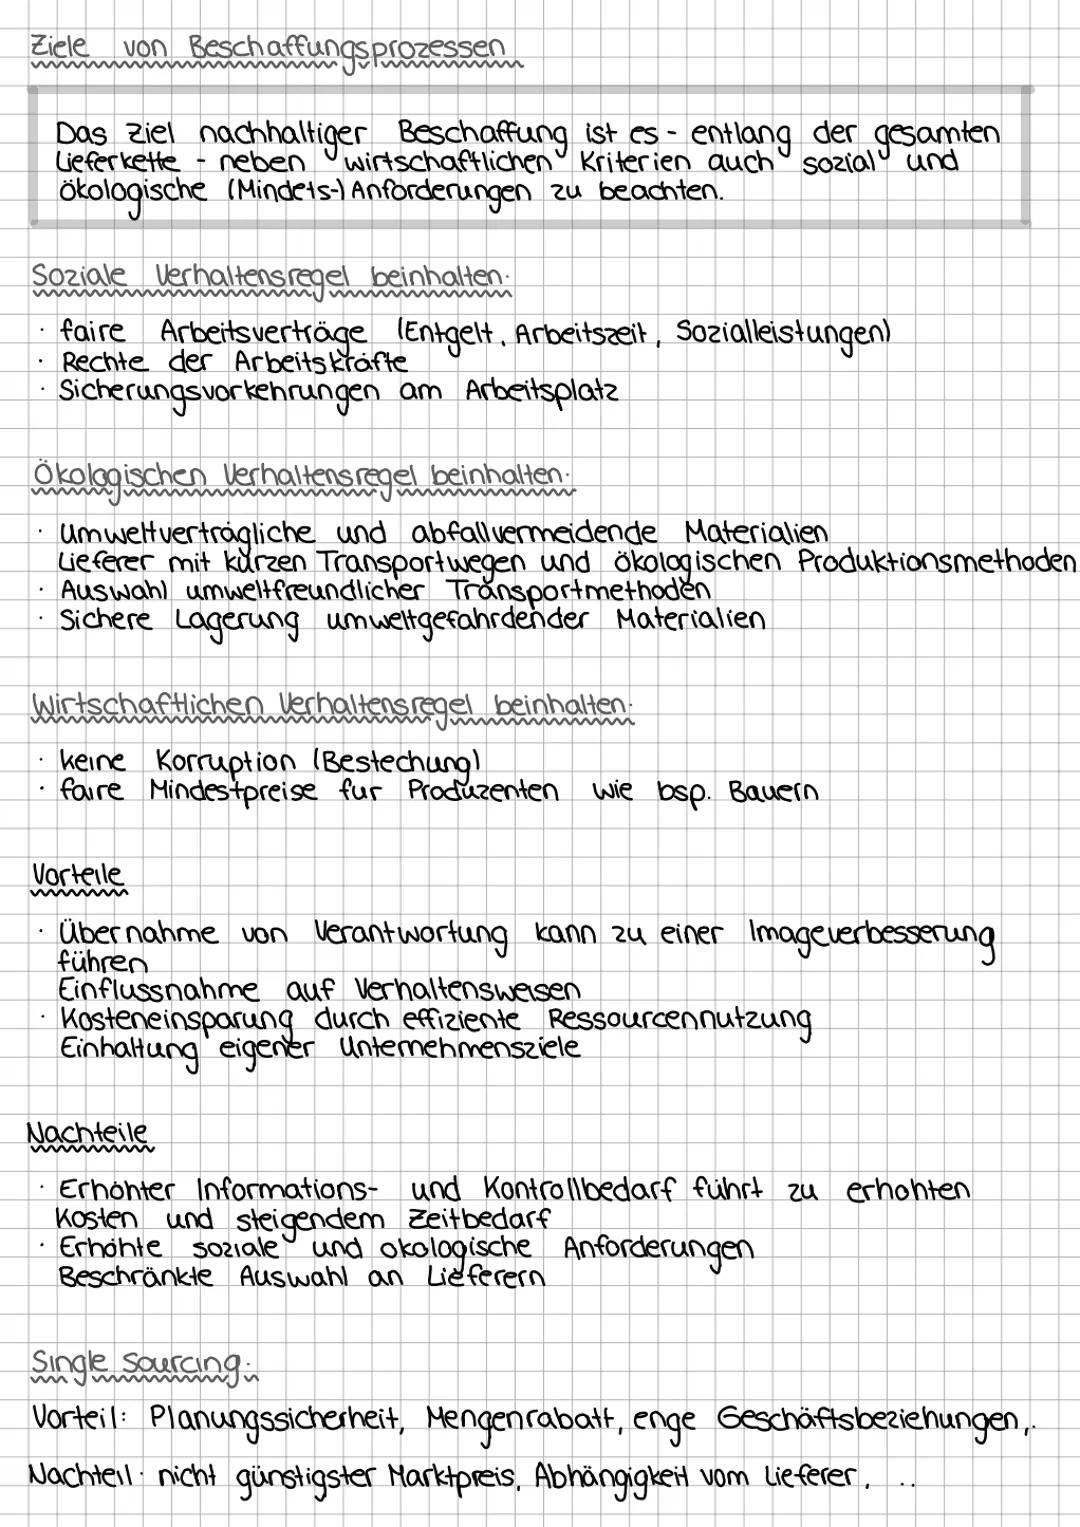 Ziele von Beschaffungsprozessen
Das Ziel nachhaltiger Beschaffung ist es - entlang der gesamten
Lieferkette - neben wirtschaftlichen Kriterien auch sozial und
ökologische (Mindets-) Anforderungen zu beachten.
Soziale Verhaltensregel beinhalten:
· faire Arbeitsverträge (Entgelt, Arbeitszeit, Sozialleistungen)
· Rechte der Arbeitskräfte
· Sicherungsvorkehrungen am Arbeitsplatz
Ökologischen Verhaltensregel beinhalten:
· Umweltverträgliche und abfallvermeidende Materialien
Lieferer mit kurzen Transportwegen und ökologischen Produktionsmethoden
· Auswahl umweltfreundlicher Transportmethoden
· Sichere Lagerung umweltgefahrdender Materialien
Wirtschaftlichen Verhaltensregel beinhalten:
· keine Korruption (Bestechung)
· faire Mindestpreise fur Produzenten wie bsp. Bauern
Vorteile
· Übernahme von Verantwortung kann zu einer Imageverbesserung
führen
Einflussnahme auf Verhaltensweisen
· Kosteneinsparung durch effiziente Ressourcennutzung
Einhaltung eigener Unternehmensziele
Nachteile
· Erhöhter Informations- und Kontrollbedarf führt zu erhohten
Kosten und steigendem Zeitbedarf
· Erhöhte soziale und okologische Anforderungen
Beschränkte Auswahl an Lieferern
Single Sourcing:
Vorteil: Planungssicherheit, Mengenrabatt, enge Geschäftsbeziehungen,.
Nachteil: nicht günstigster Marktpreis, Abhängigkeit vom Lieferer, ..